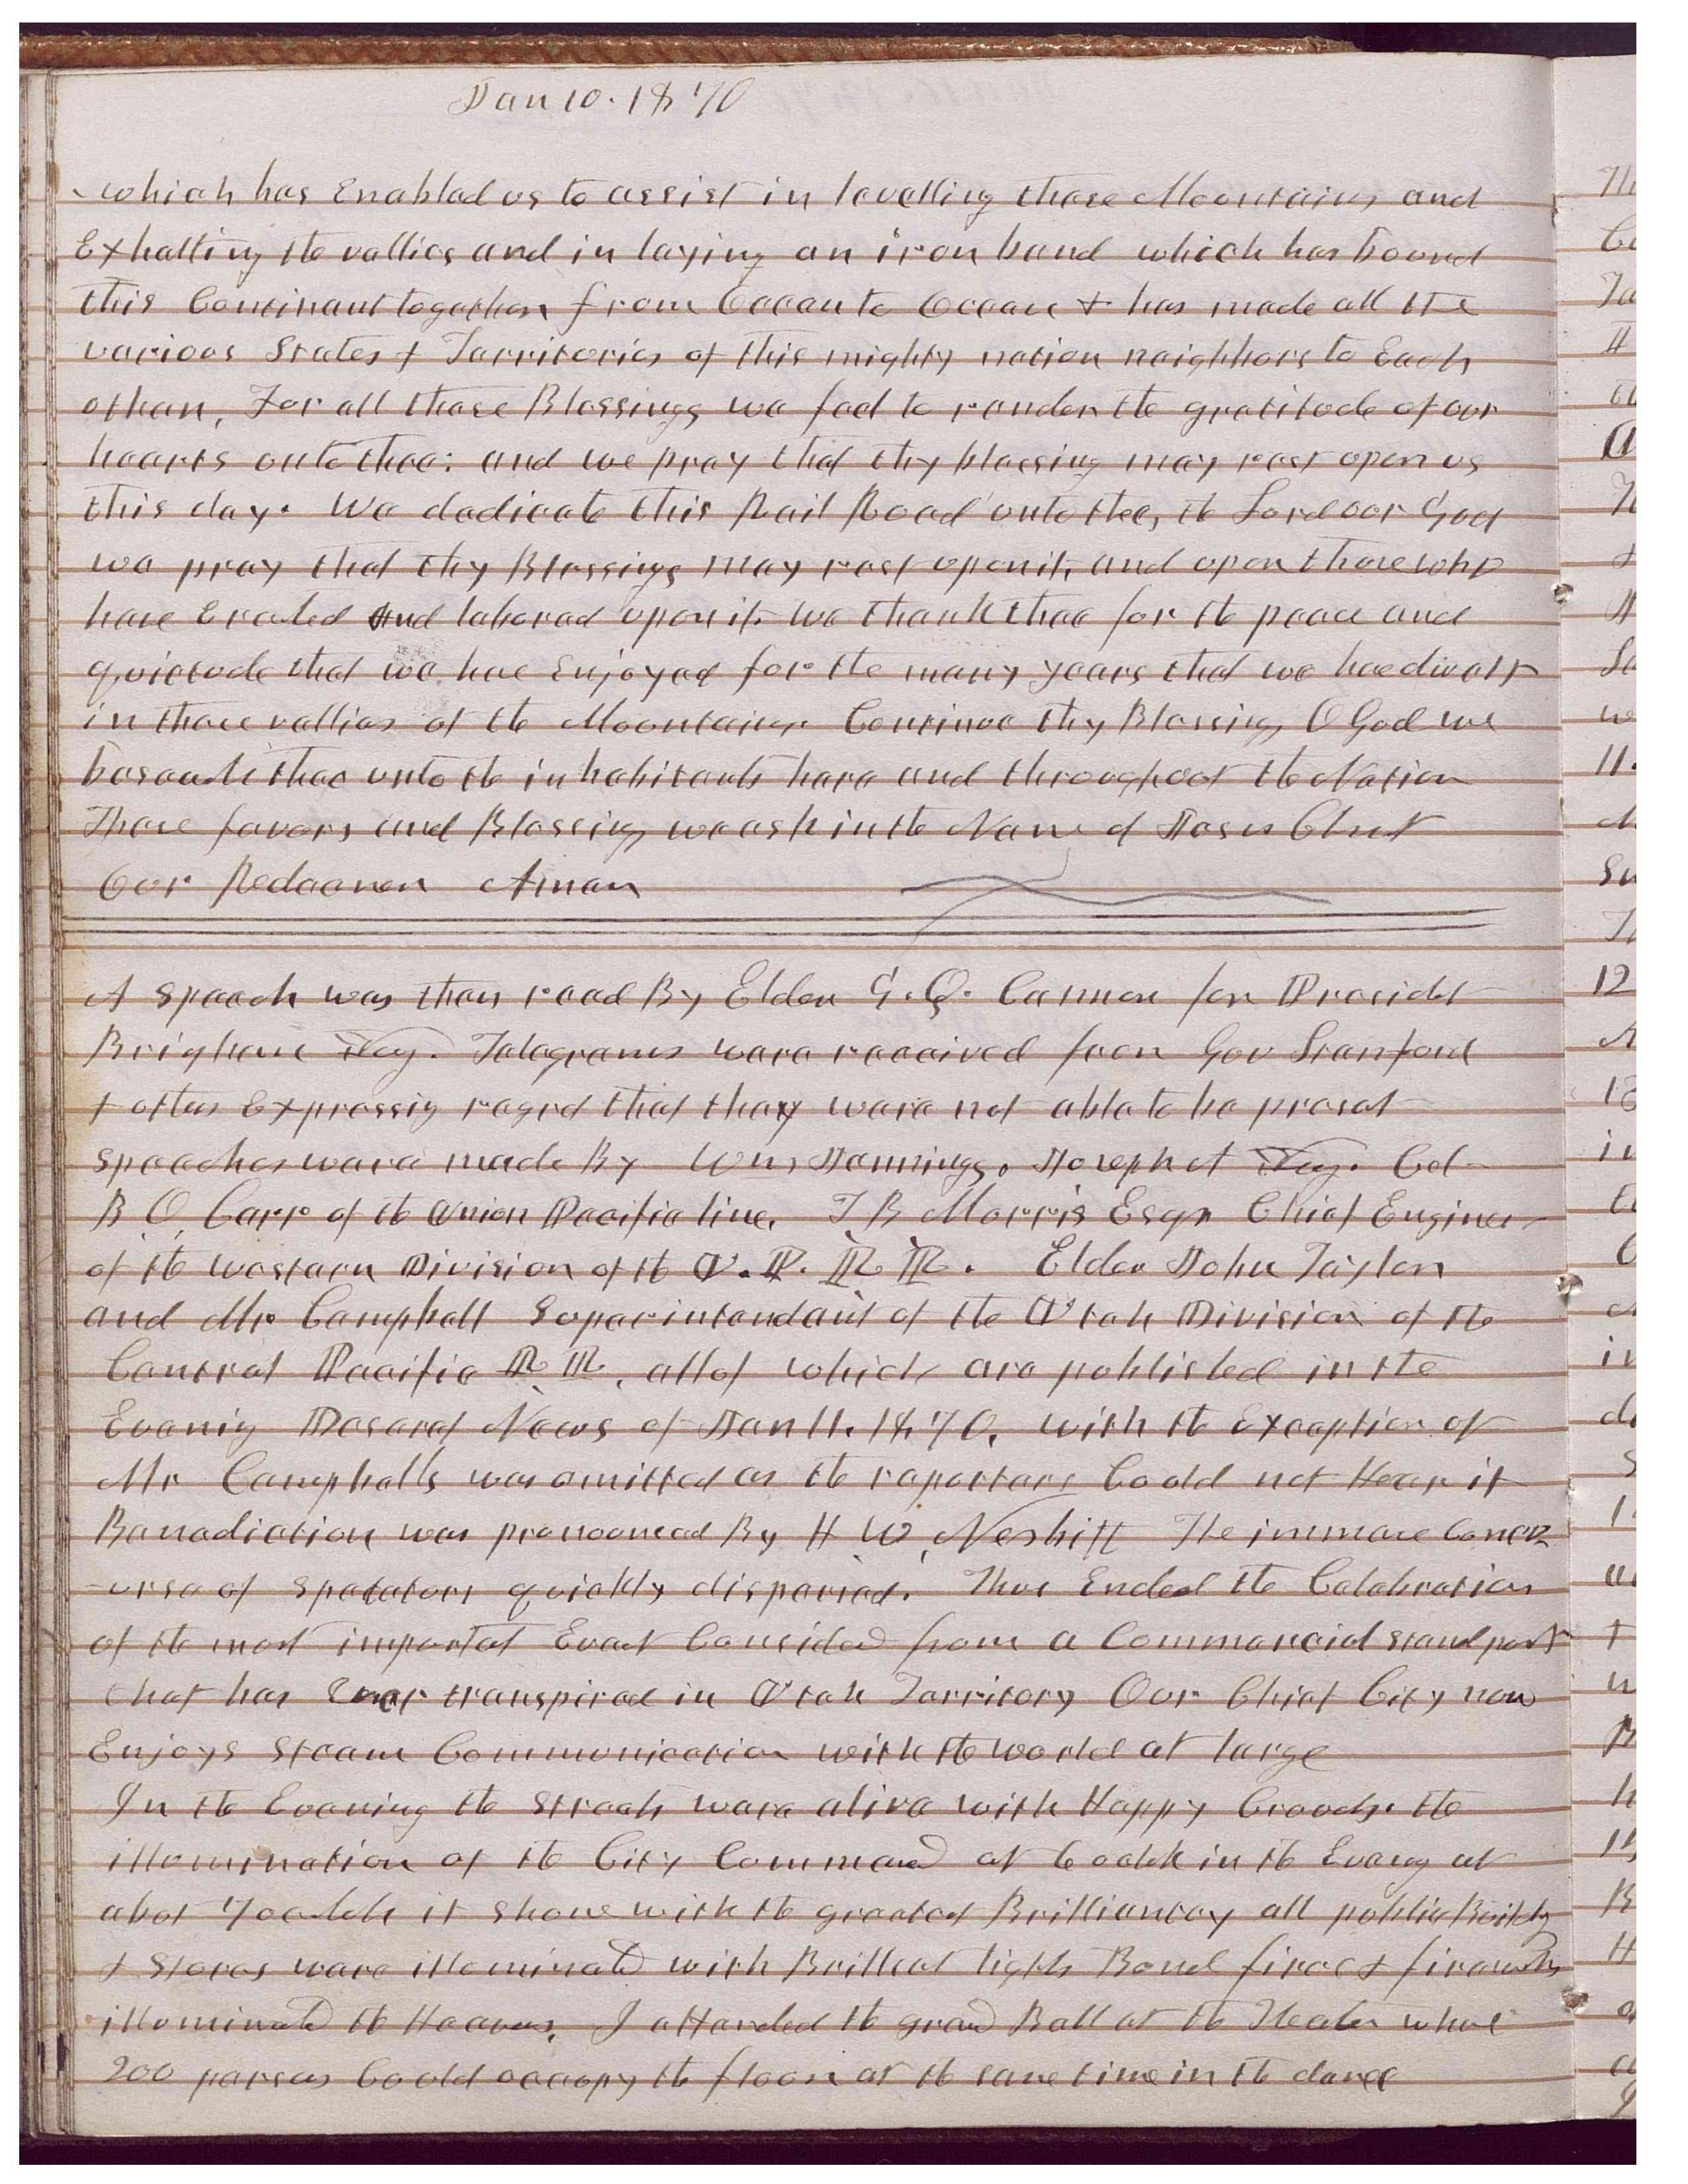 Jan 10. 1870
which has Enabled us to assist in levelling these Mountains and
Exhalting the vallies and in laying an iron band which has bound
this Continant together from Ocean to Ocean & has made all the
various States & Territories of this mighty nation neighbors to Each
other, For all these Blessings we feel to render the gratitude of our
hearts unto thee: and we pray that thy blessing may rest upon us
this day. We dedicate this Rail Road unto thee, the Lord our God
we pray that thy Blessings may rest upon it, and upon those who
have Erected and labored upon it. We thank thee for the peace and
quietude that we have Enjoyed for the many years that we have dwelt
in these vallies of the Mountains. Continue thy Blessing, O God we
beseech thee unto the inhabitants here and throughout the Nation
These favors and Blessings we ask in the Name of Jesus Christ
Our Redeemer Amen
A speech was then read By Elder G. Q. Cannon for Presidet
Brigham Yog. Telegrams were received from Gov Stanford
& others Expressig regred that they were not able to be preset
speeches were made By Wm Jennings, Joseph A Yog. Col
B O. Carr of the Union Pacific line, T B Morris Esqr Chief Engineer
of the western Division of the U. P. R R. Elder John Taylor
and Mr Campbell Superintendant of the Utah Division of the
Central Pacific R R, all of which are published in the
Evenig Deseret News of Jan 11. 1870, with the Exception of
Mr Campbells was omitted as the reporters Could not Hear it
Benediction was pronounced By H W, Nesbitt The immense Conco
urse of spectators quickly dispersed. Thus Ended the Celebration
of the most importat Evet Considerd from a Commercial stand point
that has Ever transpired in Utah Territory Our Chief City now
Enjoys steam Communication with the world at large
In the Evening the streets were alive with Happy Crouds. the
illumination of the City Commencd at 6 oclok in the Eveng at
about 7 oclok it shone with the greatest Brilliancey all public Buildg
& stores were illuminated with Brilliat lights Bond fires & fireworks
illuminated the Heavens, I attended the grand Ball at the Theater whare
200 persons Could occupy the floor at the same time in the dance